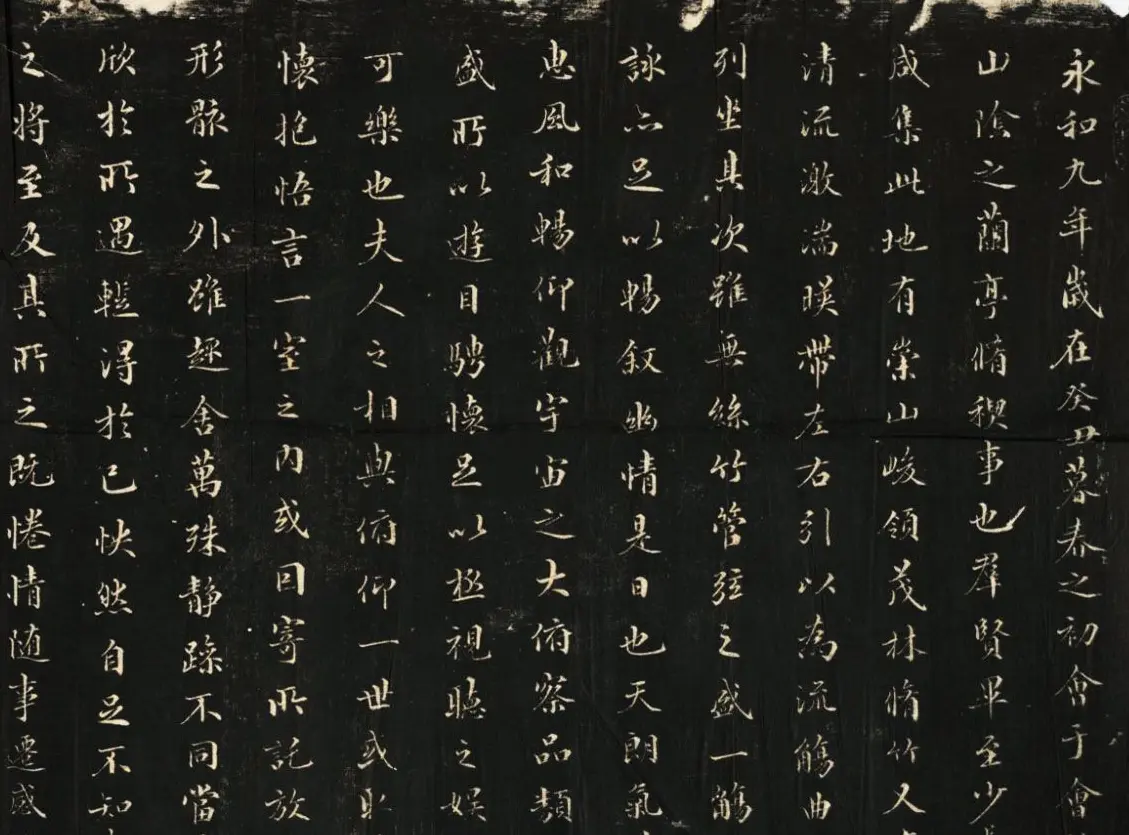 永和九年歲在癸丑暮春之初會于會
山陰之蘭亭脩稧事也羣賢畢至少
咸集此地有崇山峻領茂林脩竹又
清流激湍暎帶左右引以為流觴曲
列坐其次雖無絲竹管弦之盛一觴
詠亦足以暢叙幽情是日也天朗氣
惠風和暢仰觀宇宙之大俯察品類
盛所以遊目騁懷足以極視聽之娱
可樂也夫人之相與俯仰一世或取
懷抱悟言一室之内或囙寄所託放
形骸之外雖趣舍萬殊静躁不同當
欣於所遇蹔得於己怏然自足不知
之將至及其所之既惓情随事遷感